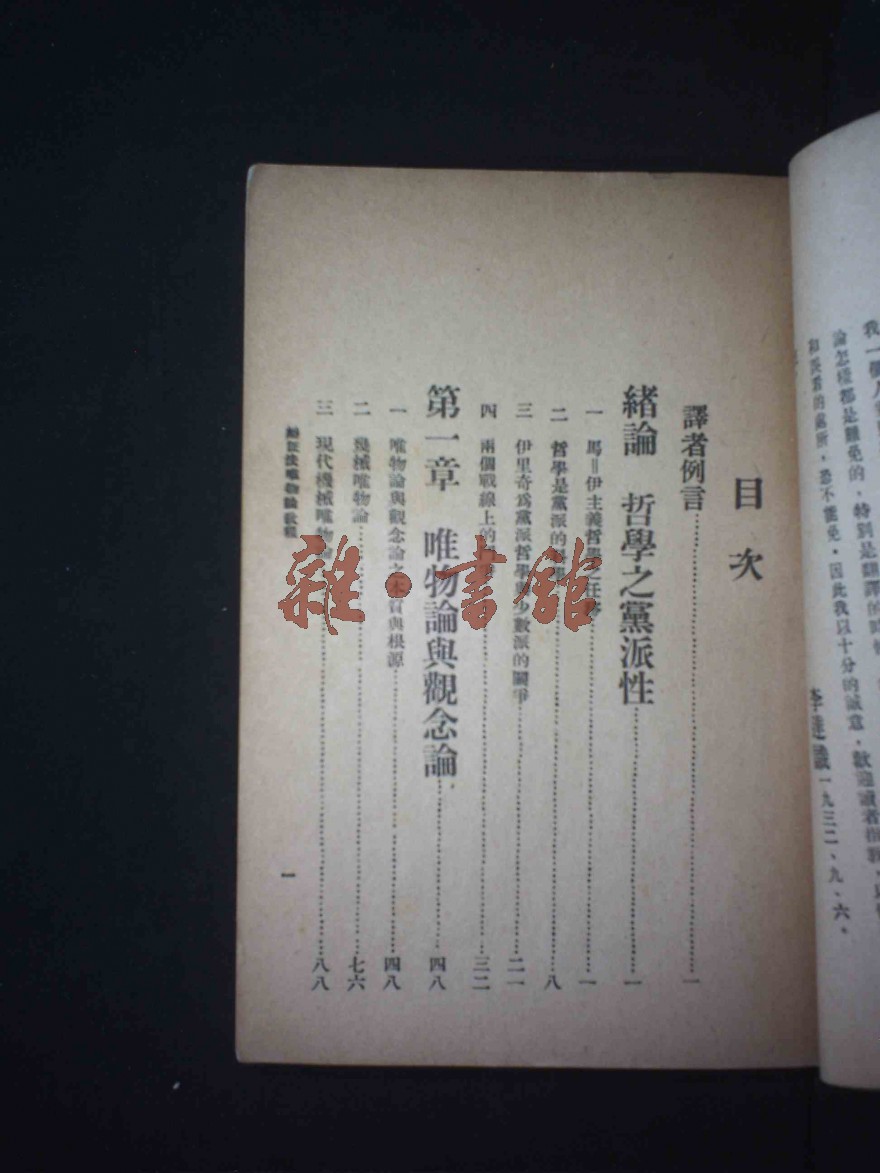 和醜劣的處所,恐不能免,因此我以十分的誠意,歡迎讀者指教
李達識一九三二、九、六。
目次
譯者例言 一
緒論 哲學之黨派性 一
一 馬=伊主義哲學之任務 一
二 哲學是黨派的 八
三 伊里奇爲黨派哲學 少數派的鬭爭 二一
四 兩個戰線上的 三二
第一章 唯物論與觀念論 四八
一 唯物論與觀念論之本質與根源 四八
二 機械唯物論 七六
三 現代機械唯物論 八八
辯証法唯物論教程
一
雜·書館